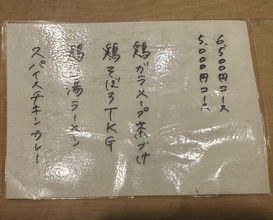 6,500円コース
5,000円コース
鶏ガラスープ茶づけ
鶏そぼろTKG
鶏白湯ラーメン
スパイスチキンカレー